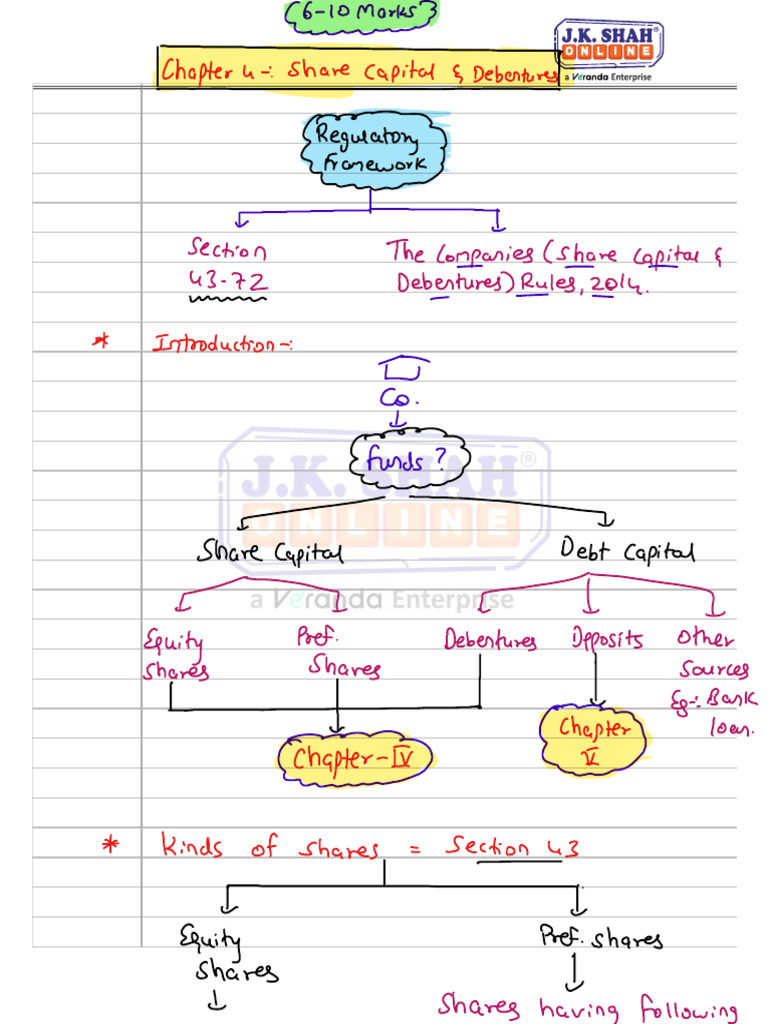 (6-10 Marks)
J.K. SHAH®
ONLINE
a Veranda Enterprise
Chapter 4 -: Share Capital & Debentures
Regulatory
Framework
Section
43-72
The Companies (Share Capital &
Debentures) Rules, 2014.
* Introduction -:
Co.
funds?
J.K. SHAH®
ONLINE
Share Capital
Debt Capital
a Veranda Enterprise
Equity
Shares
Pref.
Shares
Debentures
Dpposits
Other
Sources
Eg-: Bank
loan.
Chapter-IV
Chapter
V
* Kinds of shares = Section 43
Equity
Shares
Pref. shares
Shares having following